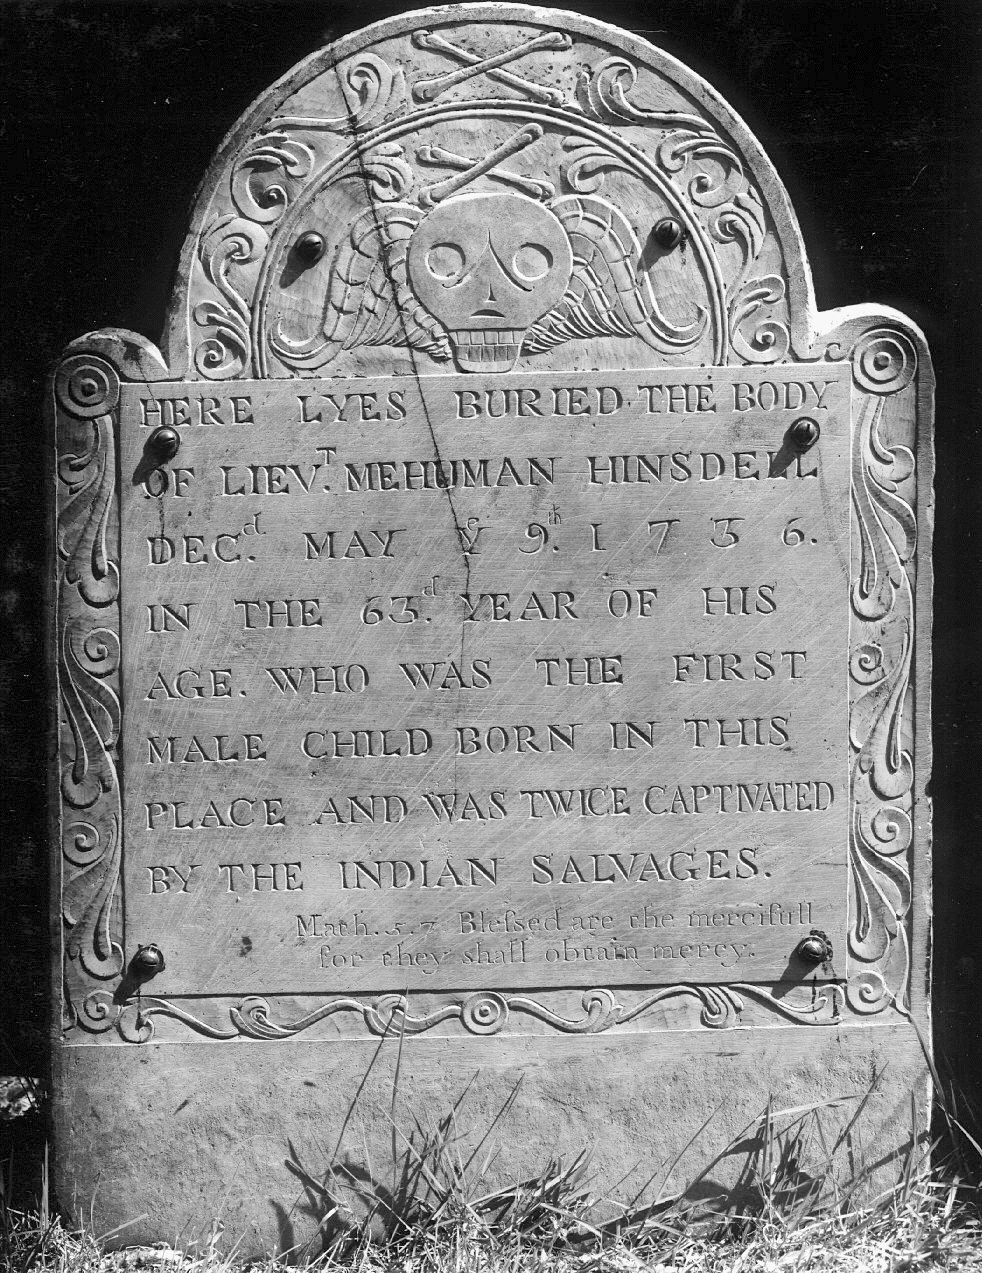 HERE LYES BURIED THE BODY
OF LIEVᵀ. MEHUMAN HINSDELL
DECᵈ. MAY yᵉ 9ᵗʰ. 1 7 3 6.
IN THE 63.ᵈ YEAR OF HIS
AGE. WHO WAS THE FIRST
MALE CHILD BORN IN THIS
PLACE AND WAS TWICE CAPTIVATED
BY THE INDIAN SALVAGES.
Math. 5. 7 Bleſsed are the merciſull
for they shall obtain mercy.